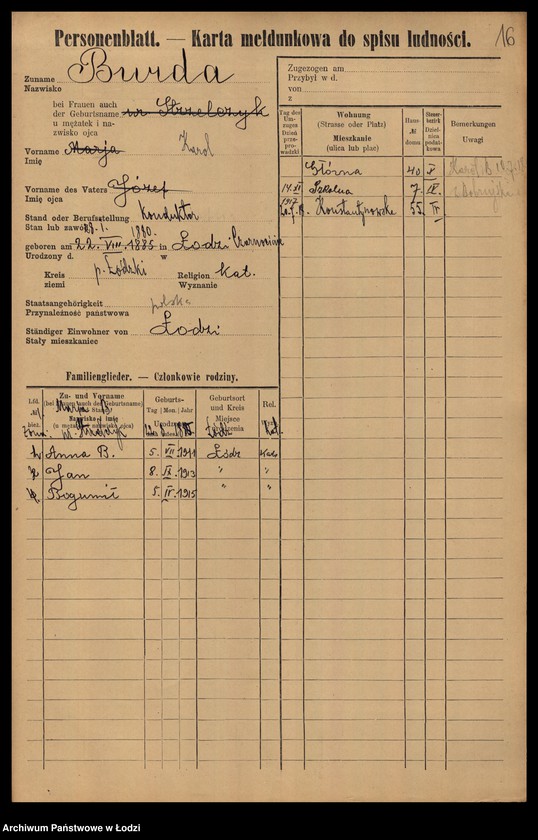 16
Personenblatt. — Karta meldunkowa do spisu ludności.
Zuname
Nazwisko
Burda
bei Frauen auch
der Geburtsname
u mężatek i na-
zwisko ojca
z Strzelczyk
Vorname
Imię
Marja Karol
Vorname des Vaters
Imię ojca
Józef
Stand oder Berufsstellung
Stan lub zawód
Konduktor
1880.
geboren am 22. VIII. 1885 in Łodzi
Urodzony d. w
Kreis
ziemi
p. Łódzki
Religion
Wyznanie
kat.
Staatsangehörigkeit
Przynależność państwowa
polska
Ständiger Einwohner von
Stały mieszkaniec
Łodzi
Zugezogen am
Przybył w d.
von
z
Tag des Um-zuges Dzień prze-pro-wadzki
Wohnung (Strasse oder Platz) Mieszkanie (ulica lub plac)
Haus- № domu
Steuer-bezirk Dziel-nica podat-kowa
Bemerkungen Uwagi
Główna 40 X
14. XI 1917 Szkolna 7. IX.
Konstantynowska 55. IV
Familienglieder. — Członkowie rodziny.
Zu- und Vorname
Geburts-
Tag Mon. Jahr
Geburtsort und Kreis Miejsce urodzenia
Rel.
Żona: Marja B. 1885. Łódź kat.
Anna B. 5. VII. 1911 Łódź kat.
Jan 8. IX. 1913 " "
Bogumił 5. IV. 1915 " "
Archiwum Państwowe w Łodzi